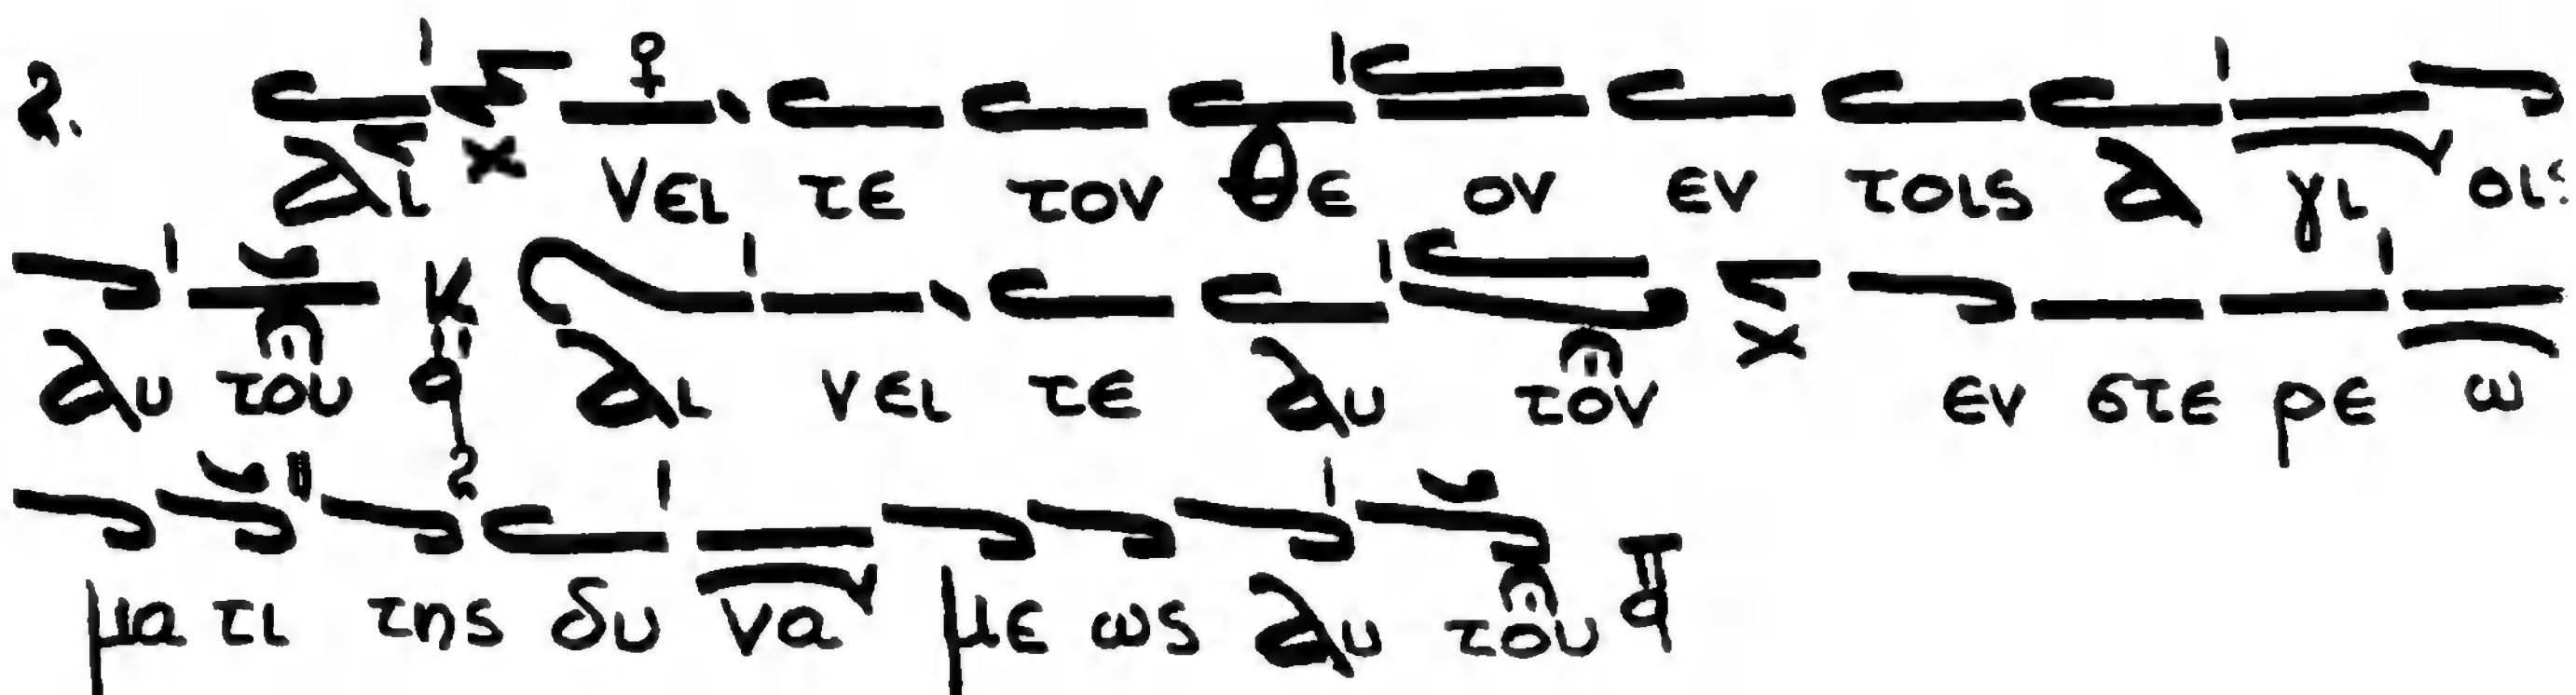 2. αι νει τε τον θε ον εν τοις α γι οις
αυ του αι νει τε αυ τον εν στε ρε ω
μα τι της δυ να με ως αυ του